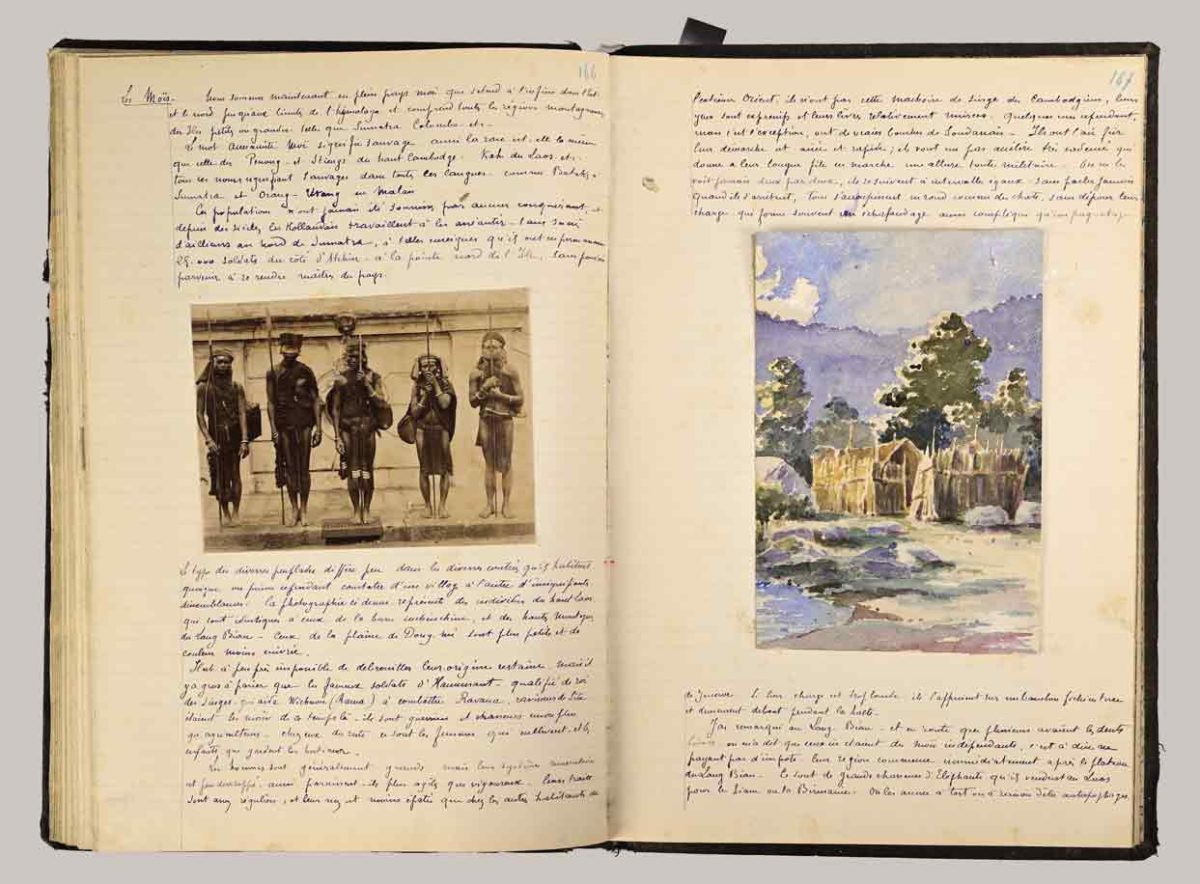 166
Les Moïs. Nous sommes maintenant en plein pays moï que s'étend à l'infini dans l'est
et le nord jusqu'aux limites de l'Himalaya et comprend toutes les régions montagneuses
des Iles petites ou grandes telles que Sumatra Colombo etc.
Le mot Annamite Moï signifie sauvage aussi la race est elle la même
que celle des Penong et Stiengs du haut Cambodge. Khas du Laos, etc.
tous ces noms signifiant Sauvages dans toutes ces langues comme Battaks
Sumatra et Orang-Utang en Malais
Ces populations n'ont jamais été soumises par aucun conquérant, et
depuis des siècles les Hollandais travaillent à les anéantir sans succès
d'ailleurs au nord de Sumatra, à telles enseignes qu'ils ont en permanence
25.000 soldats du côté d'Atchin à la pointe nord de l'Ile, sans pouvoir
parvenir à se rendre maîtres du pays.
Le type des diverses peuplades diffère peu dans les diverses contrées qu'ils habitent
quoique on puisse cependant constater d'un village à l'autre d'insignifiantes
dissemblances. La photographie ci dessus représente des individus du haut Laos
qui sont identiques à ceux de la basse cochinchine, et des hautes montagnes
du Lang Bian. Ceux de la plaine de Dong sont plus petits et de
couleur moins cuivrée.
Il est à peu près impossible de débrouiller leur origine certaine mais il
y a gros à parier que les fameux soldats d'Hanumant qualifié de roi
des Singes qui aida Vichnou (Rama) à combattre Ravana, ravisseur de Sita
étaient les moïs de ce temps là. ils sont guerriers et chasseurs encore plus
qu'agriculteurs. chez eux du reste ce sont les femmes qui cultivent, et les
enfants qui gardent les
Les hommes sont généralement grands mais leur système musculaire
est peu développé aussi paraissent ils plus agiles que vigoureux. leurs traits
sont assez réguliers, et leur nez est moins épaté que chez les autres habitants de
167
l'extrême Orient. ils n'ont pas cette mâchoire de singe des Cambodgiens, leurs
yeux sont expressifs et leurs lèvres relativement minces. Quelques uns cependant,
mais c'est l'exception, ont de vraies bouches de Soudanais. Ils ont l'air fier
leur démarche est aisée et rapide; ils vont au pas accéléré très cadencé qui
donne à leur longue file en marche une allure toute militaire. On ne les
voit jamais deux par deux, ils se suivent à intervalles égaux sans parler jamais
Quand ils s'arrêtent, tous s'accroupissent en rond comme des chats, sans déposer leur
charge qui forme souvent un échafaudage aussi compliqué qu'un paquetage
de guerre. Si leur charge est trop lourde ils l'appuient sur un bambou
et demeurent debout pendant la halte.
J'ai remarqué au Lang Bian et en route que plusieurs avaient les dents
limées on m'a dit que ceux ci étaient des moïs indépendants, c'est à dire ne
payant pas d'impôts. leur région commence immédiatement après le plateau
du Lang Bian. Ce sont de grands chasseurs d'Eléphants qu'ils vendent au Laos
pour le Siam ou la Birmanie. On les accuse à tort ou à raison d'être anthropophages.